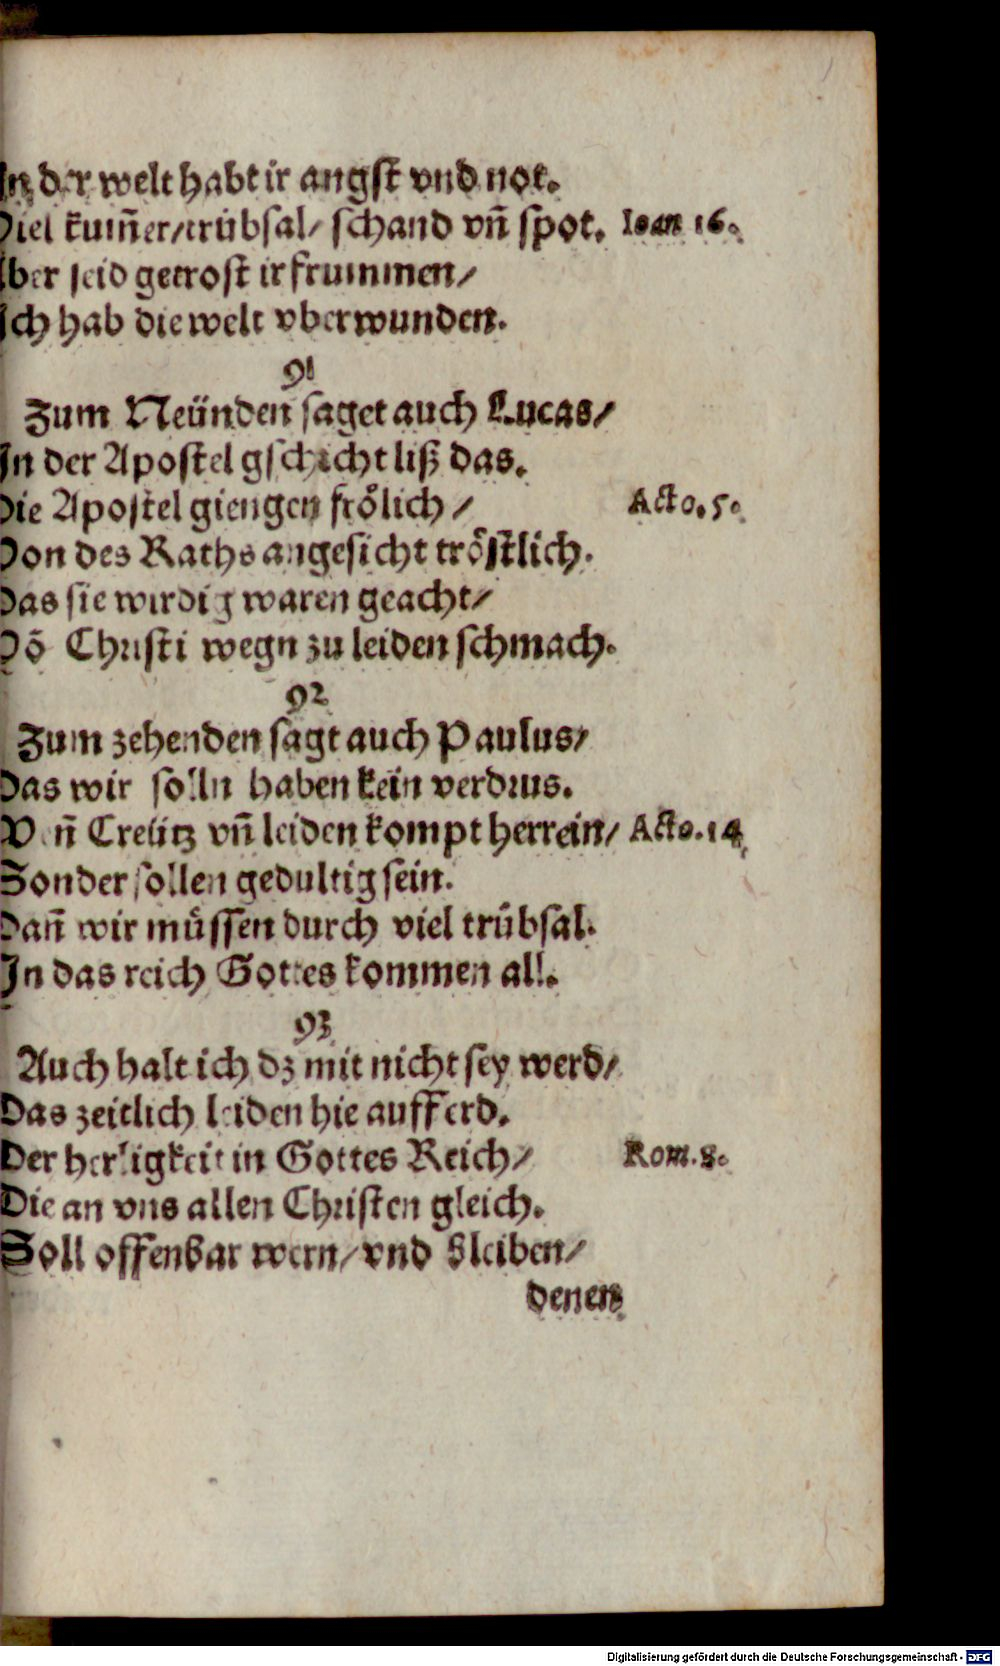 In der welt habt ir angst vnd not.
Viel kum̄er/trübsal/ schand vn̄ spot. Ioan 16.
Aber seid getrost ir frummen/
Ich hab die welt vberwunden.
91
Zum Neünden saget auch Lucas/
In der Apostel gschicht liß das.
Die Apostel giengen frölich / Acto. 5.
Von des Raths angesicht tröstlich.
Das sie wirdig waren geacht/
Vō Christi wegn zu leiden schmach.
92
Zum zehenden sagt auch Paulus/
Das wir solln haben kein verdrus.
Wen̄ Creütz vn̄ leiden kompt herrein/ Acto. 14.
Sonder sollen gedultig sein.
Dan̄ wir müssen durch viel trübsal.
In das reich Gottes kommen all.
93
Auch halt ich dz mit nicht sey werd/
Das zeitlich leiden hie auff erd.
Der herligkeit in Gottes Reich/ Rom. 8.
Die an vns allen Christen gleich.
Soll offenbar wern/ vnd bleiben/
denen
Digitalisierung gefördert durch die Deutsche Forschungsgemeinschaft - DFG